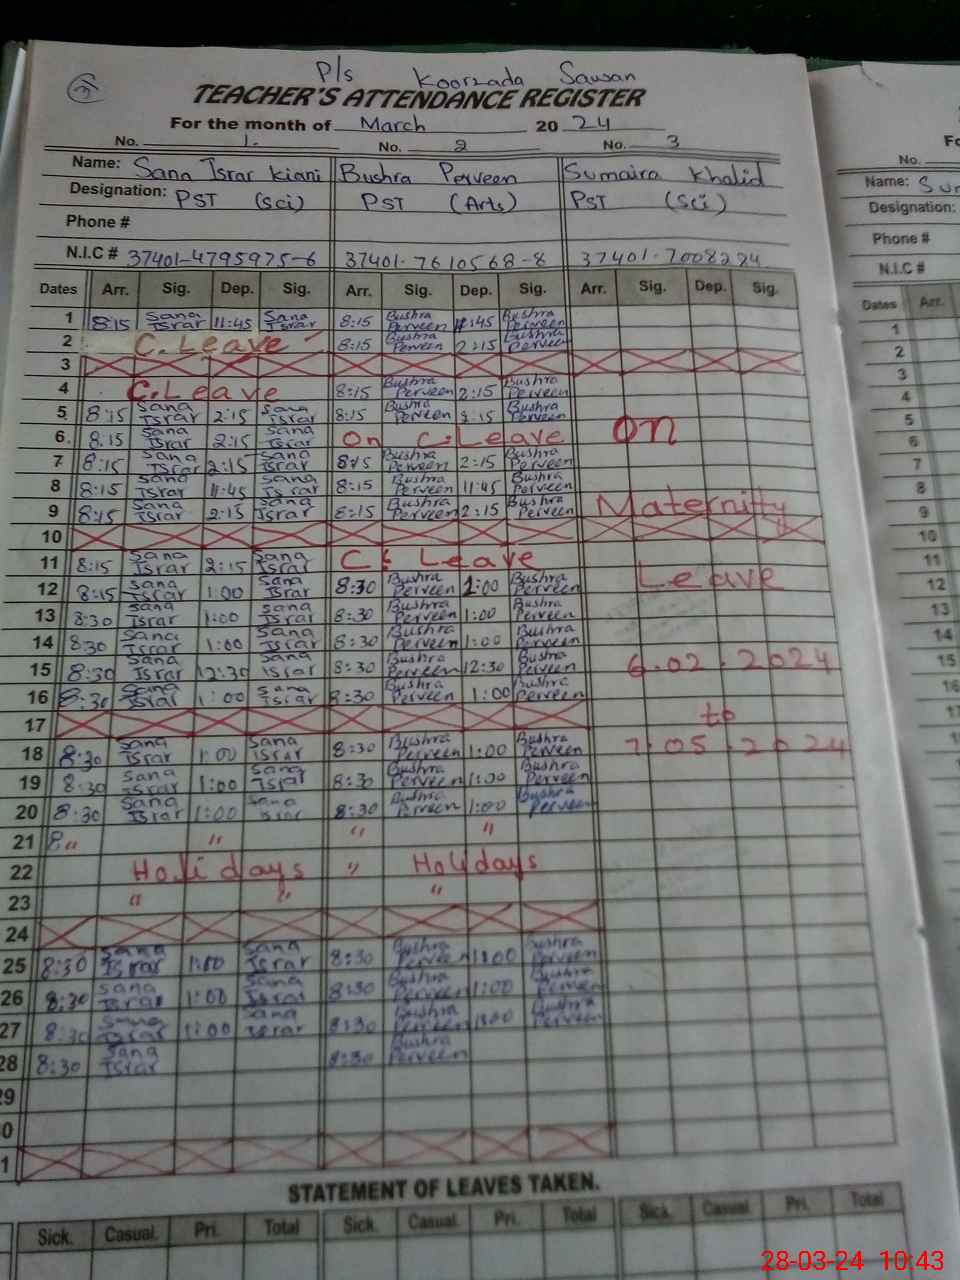 P/s Koorzada Sawan
TEACHER'S ATTENDANCE REGISTER
For the month of March 2024
No. 1. No. 2 No. 3
Name: Sana Israr Kiani Bushra Perveen Sumaira Khalid
Designation: PST (Sci) PST (Arts) PST (Sci)
Phone #
N.I.C # 37401-4795975-6 37401-7610568-8 37401-7008284
Dates Arr. Sig. Dep. Sig. Arr. Sig. Dep. Sig. Arr. Sig. Dep. Sig.
1 8:15 Sana Israr 11:45 Sana Israr 8:15 Bushra Perveen 11:45 Bushra Perveen
2 C. Leave 8:15 Bushra Perveen 2:15 Bushra Perveen
3
4 C. Leave 8:15 Bushra Perveen 2:15 Bushra Perveen
5 8:15 Sana Israr 2:15 Sana Israr 8:15 Bushra Perveen 2:15 Bushra Perveen
6 8:15 Sana Israr 2:15 Sana Israr On C. Leave On
7 8:15 Sana Israr 2:15 Sana Israr 8:15 Bushra Perveen 2:15 Bushra Perveen
8 8:15 Sana Israr 11:45 Sana Israr 8:15 Bushra Perveen 11:45 Bushra Perveen
9 8:15 Sana Israr 2:15 Sana Israr 8:15 Bushra Perveen 2:15 Bushra Perveen Maternitty
10
11 8:15 Sana Israr 2:15 Sana Israr C: Leave
12 8:15 Sana Israr 1:00 Sana Israr 8:30 Bushra Perveen 1:00 Bushra Perveen Leave
13 8:30 Sana Israr 1:00 Sana Israr 8:30 Bushra Perveen 1:00 Bushra Perveen
14 8:30 Sana Israr 1:00 Sana Israr 8:30 Bushra Perveen 1:00 Bushra Perveen
15 8:30 Sana Israr 12:30 Sana Israr 8:30 Bushra Perveen 12:30 Bushra Perveen 6.02.2024
16 8:30 Sana Israr 1:00 Sana Israr 8:30 Bushra Perveen 1:00 Bushra Perveen
17 to
18 8:30 Sana Israr 1:00 Sana Israr 8:30 Bushra Perveen 1:00 Bushra Perveen 7.05.2024
19 8:30 Sana Israr 1:00 Sana Israr 8:30 Bushra Perveen 1:00 Bushra Perveen
20 8:30 Sana Israr 1:00 Sana Israr 8:30 Bushra Perveen 1:00 Bushra Perveen
21 " " " "
22 Holidays " Holidays
23 " " "
24
25 8:30 Sana Israr 1:00 Sana Israr 8:30 Bushra Perveen 1:00 Bushra Perveen
26 8:30 Sana Israr 1:00 Sana Israr 8:30 Bushra Perveen 1:00 Bushra Perveen
27 8:30 Sana Israr 1:00 Sana Israr 8:30 Bushra Perveen 1:00 Bushra Perveen
28 8:30 Sana Israr 8:30 Bushra Perveen
29
0
1
STATEMENT OF LEAVES TAKEN.
Sick. Casual. Pri. Total Sick. Casual. Pri. Total Sick. Casual. Pri. Total
Fo
No.
Name: Sur
Designation:
Phone #
N.I.C #
Dates Arr.
1
2
3
4
5
6
7
8
9
10
11
12
13
14
15
16
28-03-24 10:43